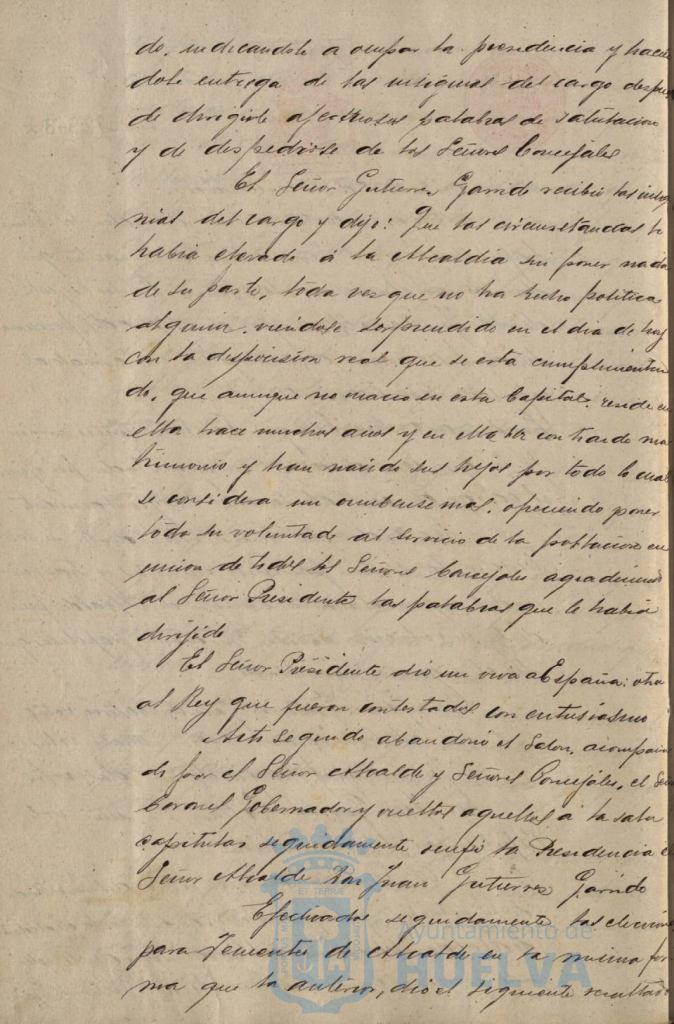 do, indicandole a ocupar la presidencia y hacien
dole entrega de las insignias del cargo despues
de dirigirle afectuosas palabras de salutacion
y de despedirse de los Señores Concejales
El Señor Gutierrez Garrido recibió las insig
nias del cargo y dijo: Que las circunstancias le
habia elevado á la Alcaldía sin poner nada
de su parte, toda vez que no ha hecho politica
alguna, viendose sorprendido en el dia de hoy
con la disposicion real que se esta cumplimentan
do, que aunque no nacio en esta Capital, reside en
ella hace muchos años y en ella ha contraido ma
trimonio y han nacido sus hijos por todo lo cual
se considera un onubense mas, ofreciendo poner
toda su voluntad al servicio de la poblacion en
union de todos los Señores Concejales agradeciendo
al Señor Presidente las palabras que le habia
dirijido
El Señor Presidente dio un viva a España: otro
al Rey que fueron contestados con entusiasmo
Acto seguido abandonó el Salon, acompaña
do por el Señor Alcalde y Señores Concejales, el Señor
Coronel Gobernador y vueltos aquellos á la sala
capitular seguidamente ocupó la Presidencia el
Señor Alcalde Don Juan Gutierrez Garrido
Efectuadas seguidamente las elecciones
para Tenientes de Alcalde en la misma for
ma que la anterior, dió el siguiente resultado
Ayuntamiento de
HUELVA